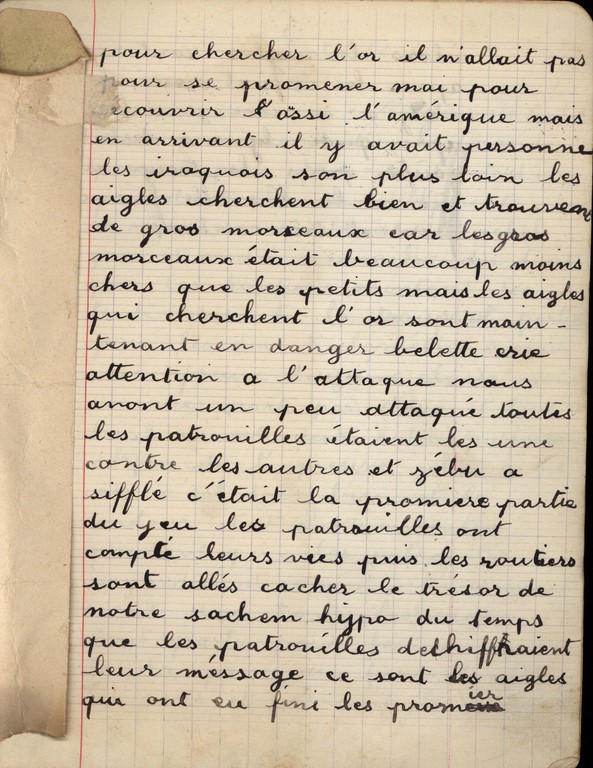 pour chercher l'or il n'allait pas
pour se promener mai pour
écouvrir l'assi l'amérique mais
en arrivant il y avait personne
les iroquois son plus loin les
aigles cherchent bien et trouvent
de gros morceaux car les gros
morceaux était beaucoup moins
chers que les petits mais les aigles
qui cherchent l'or sont main-
tenant en danger belette crie
attention a l'attaque nous
avont un peu attaqué toutes
les patrouilles étaient les une
contre les autres et zébu a
sifflé c'était la promiere partie
du jeu les patrouilles ont
compté leurs vies puis les routiers
sont allés cacher le trésor de
notre sachem hypo du temps
que les patrouilles deshiffraient
leur méssage ce sont les aigles
qui ont eu fini les promier